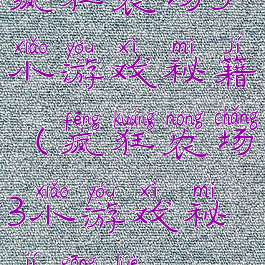 疯狂农场3
xiǎo yóu xì mì jí
小游戏秘籍
fēng kuáng nóng chǎng
(疯狂农场
xiǎo yóu xì mì
3小游戏秘
jí gōng lüè